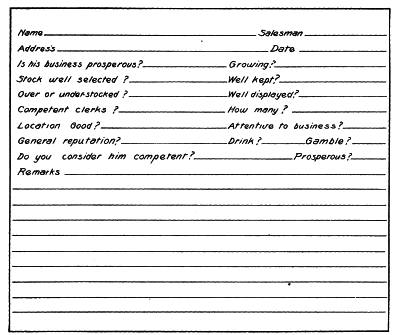 Name Salesman
Address Date
Is his business prosperous? Growing?
Stock well selected? Well kept?
Over or under-stocked? Well displayed?
Competent clerks? How many?
Location Good? Attentive to business?
General reputation? Drink? Gamble?
Do you consider him competent? Prosperous?
Remarks